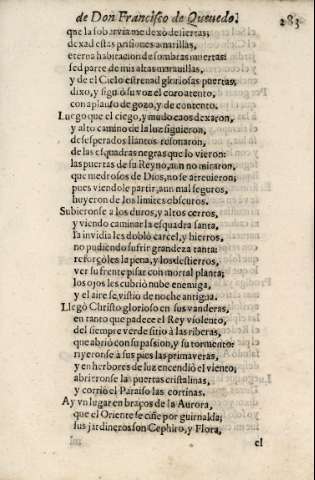 de Don Francisco de Queuedo.
283
que la sobervia me dexò desiertas;
dexad estas prisiones amarillas,
eterna habitacion de sombras muertas:
sed parte de mis altas marauillas,
y de el Cielo estrenad gloriosas puertas;
dixo, y siguiò su voz el coro atento,
con aplauso de gozo, y de contento.
Luego que el ciego, y mudo caos dexaron,
y alto camino de la luz siguieron,
desesperados llantos resonaron,
de las esquadras negras que lo vieron:
las puertas de su Reyno, aun no miraron,
que medrosos de Dios, no se atreuieron;
pues viendole partir, aun mal seguros,
huyeron de los limites obscuros.
Subieronse a los duros, y altos cerros,
y viendo caminar la esquadra santa,
su invidia les doblò carcel, y hierros,
no pudiendo sufrir grandeza tanta:
reforçòles la pena, y los destierros,
ver su frente pisar con mortal planta;
los ojos les cubriò nube enemiga,
y el aire se vistio de noche antigua.
Llegò Christo glorioso en sus vanderas,
en tanto que padece el Rey violento,
del siempre verde sitio à las riberas,
que abriò con su passion, y su tormento:
rieronse à sus pies las primaveras,
y en herbores de luz encendiò el viento;
abrieronse las puertas cristalinas,
y corriò el Paraiso las cortinas.
Ay vn lugar en braços de la Aurora,
que el Oriente se ciñe por guirnalda;
sus jardineros son Cephiro, y Flora,
el